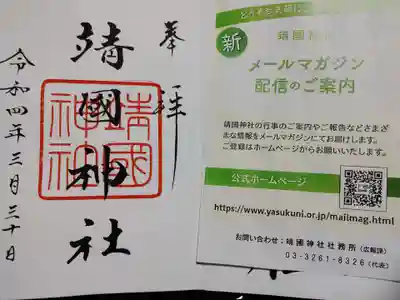 奉拝
靖國神社
靖國神社
令和四年三月三十日
新
メールマガジン
配信のご案内
靖國神社の行事のご案内やご報告などさまざ
まな情報をメールマガジンにてお届けします。
ご登録はホームページからお願いいたします。
公式ホームページ
https://www.yasukuni.or.jp/mailmag.html
お問い合わせ：靖國神社社務所（広報課）
03-3261-8326（代表）